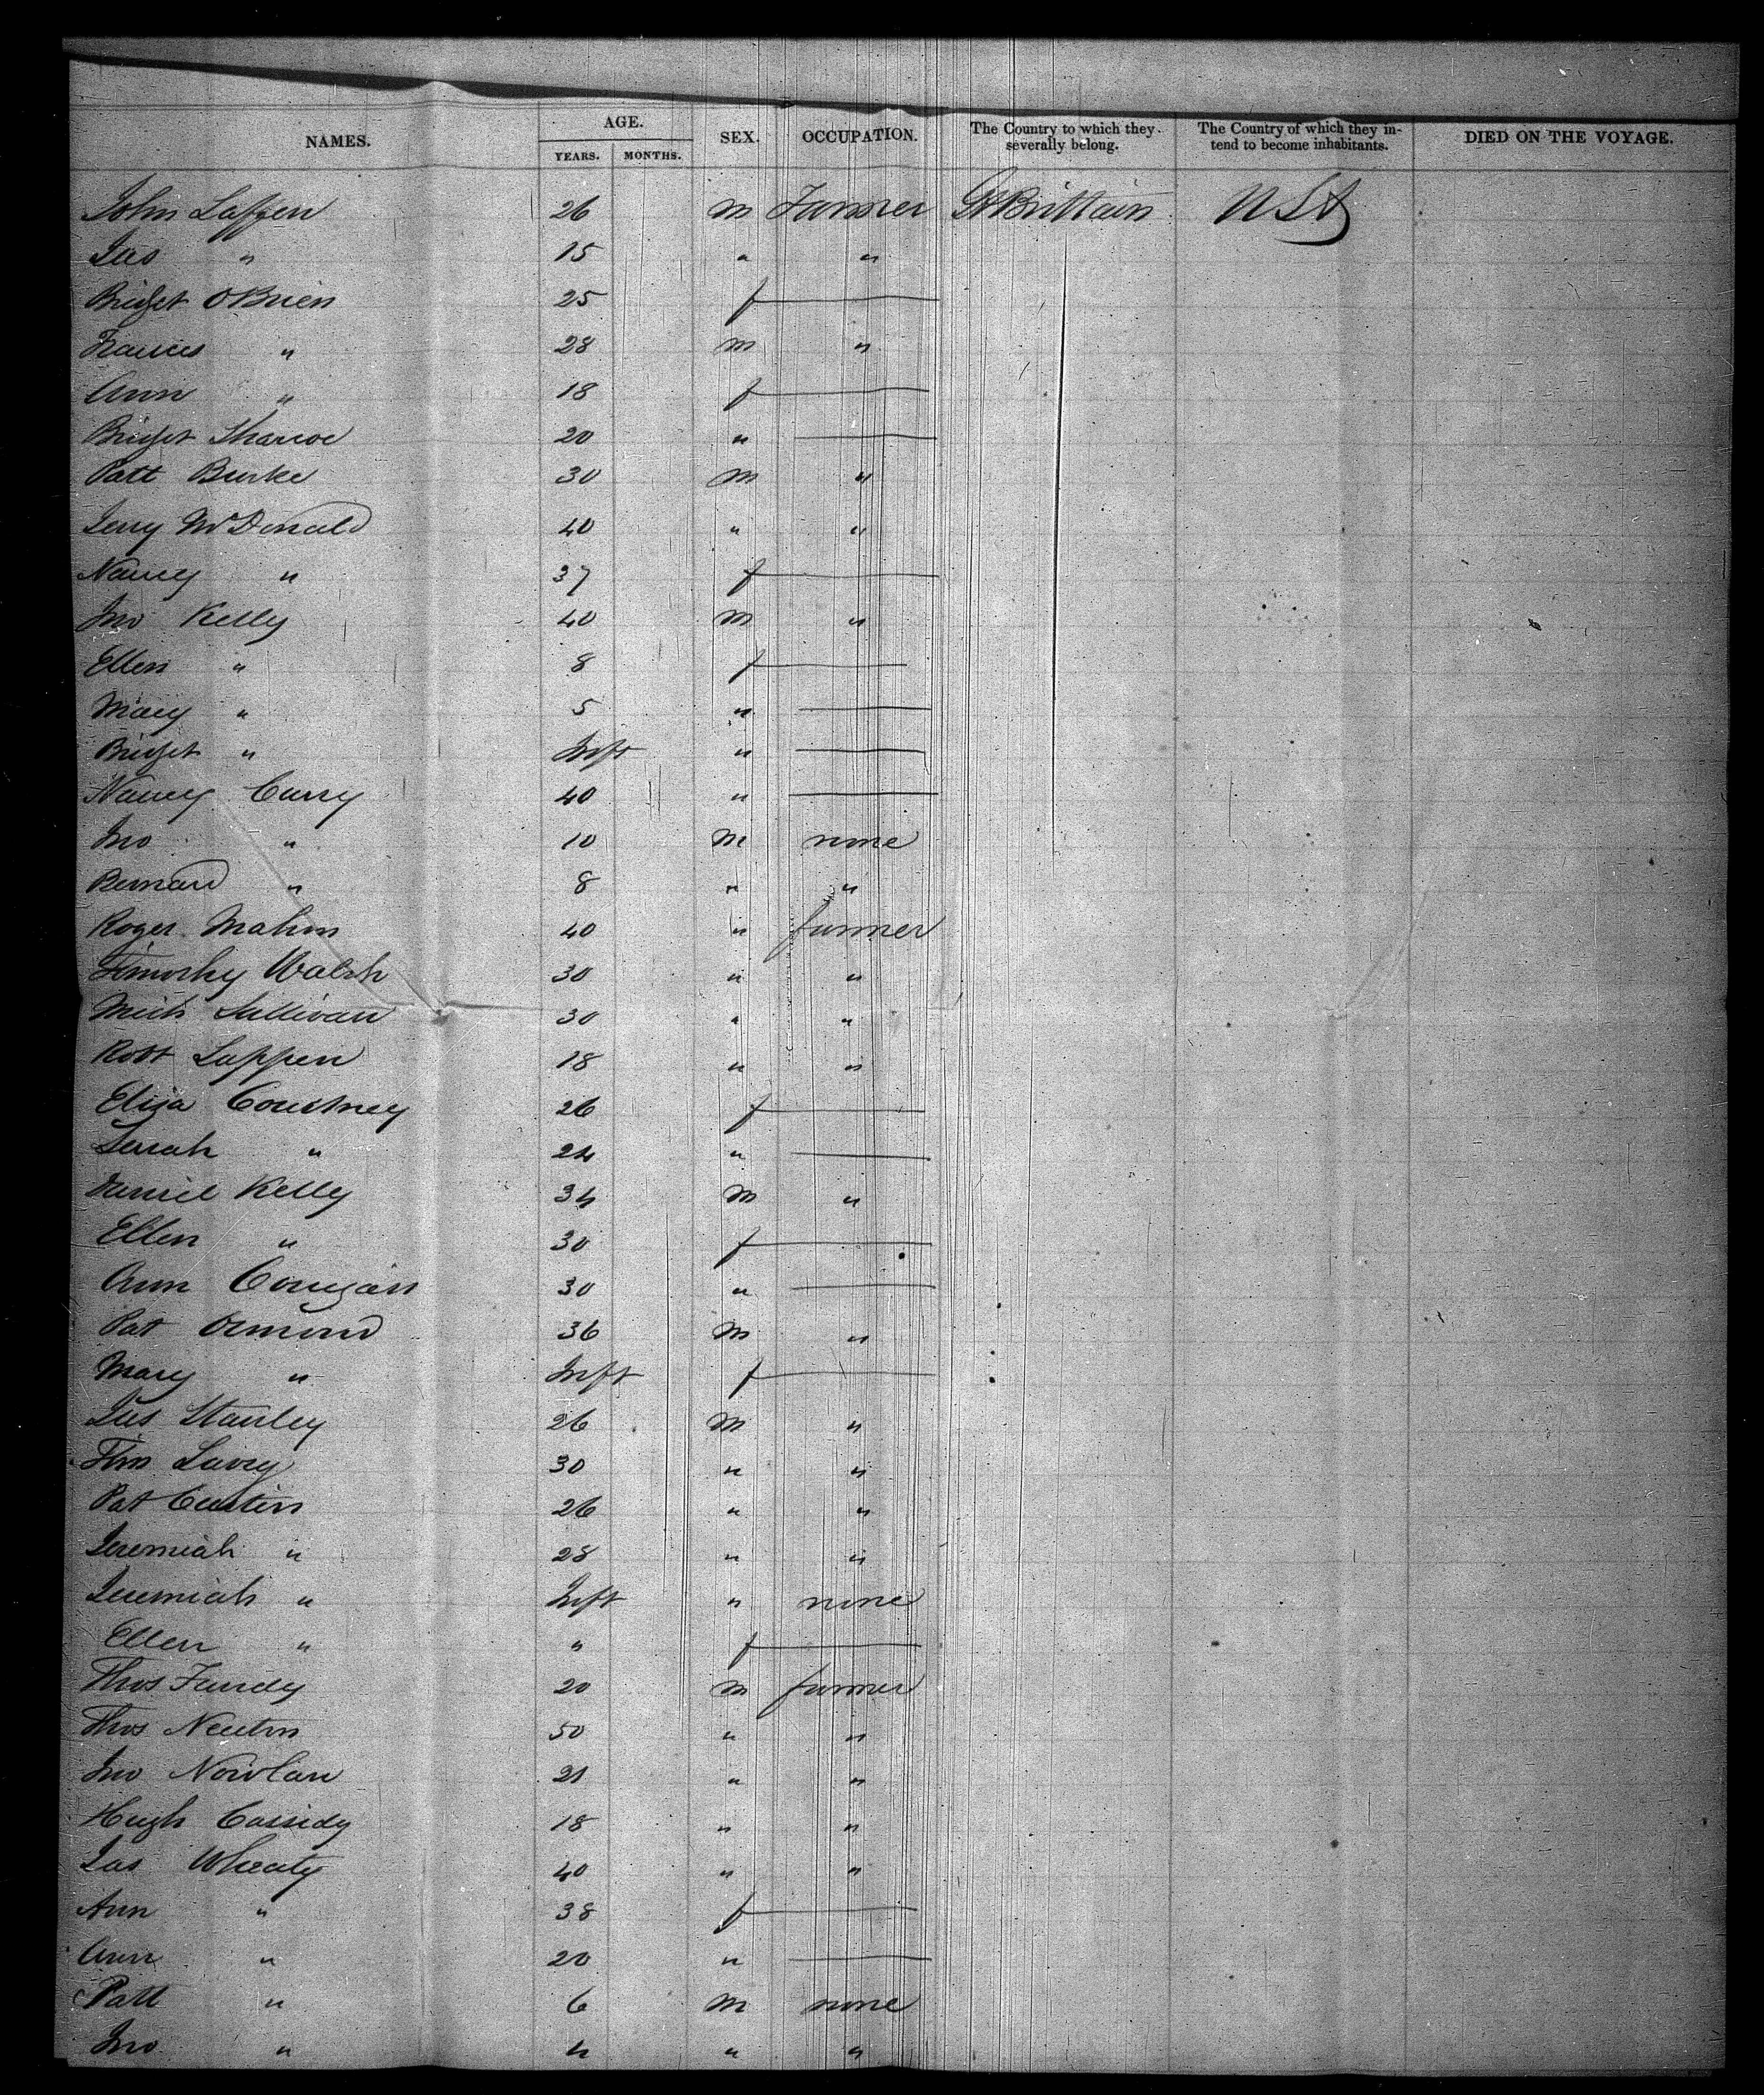 NAMES. AGE. SEX. OCCUPATION. The Country to which they severally belong. The Country of which they intend to become inhabitants. DIED ON THE VOYAGE.
YEARS. MONTHS.
John Laffen 26 m Farmer Gt Brittain USA
Jas " 15 " "
Bridget OBrien 25 f
Frances " 28 m "
Ann " 18 f
Bridget 20 "
Patt Burke 30 m "
Jerry McDonald 40 " "
Nancy " 37 f
Jno Kelly 40 m "
Ellen " 8 f
Mary " 5 "
Bridget " Inft "
Nancy Curry 40 "
Jno " 10 m none
Bernard " 8 " "
Roger Mahon 40 " farmer
Timothy Walsh 30 " "
Mich Sullivan 30 " "
Robt Lappen 18 " "
Eliza Courtney 26 f
Sarah " 24 "
Daniel Kelly 34 m "
Ellen " 30 f
Ann Corrigan 30 "
Pat Ormond 36 m "
Mary " Inft f
Jas Stanley 26 m "
Tim Lavey 30 " "
Pat Curtin 26 " "
Jeremiah " 28 " "
Jeremiah " Inft " none
Ellen " " f
Thos 20 m farmer
Thos Newton 50 " "
Jno Nowlan 21 " "
Hugh Cassidy 18 " "
Jas Wheaty 40 " "
Ann " 38 f
Ann " 20 "
Patt " 6 m none
Jno " 4 " "